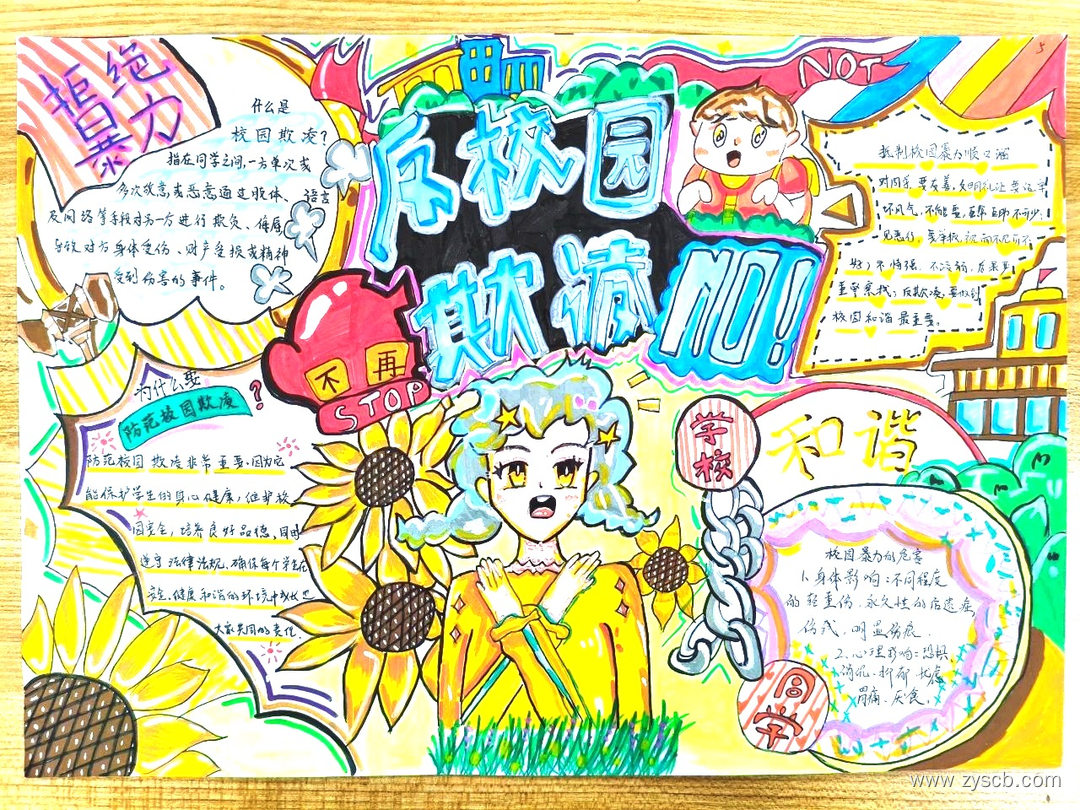 拒绝
暴力
什么是
校园欺凌?
指在同学之间,一方单次或
多次故意或恶意通过肢体、语言
及网络等手段对另一方进行欺负、侮辱
导致对方身体受伤、财产受损或精神
受到伤害的事件。
反校园
欺凌NO!
NOT
5
抵制校园暴力顺口溜
对同学,要友善,文明礼让
坏风气,不能要,
不恃强、不凌弱,
反欺凌,要做到
校园和谐最重要。
不再
STOP
为什么要
防范校园欺凌?
防范校园欺凌非常重要,因为它
能保护学生的身心健康,维护校
园安全,培养良好品德,同时
遵守法律法规,确保每个学生在
安全、健康和谐的环境中成长也
大家共同的责任。
学校
和谐
校园暴力的危害
1、身体影响:不同程度
的轻重伤、永久性的后遗症
伤残、明显伤痕.
2、心理影响:恐惧
消沉、抑郁、忧虑
胃痛、厌食.
同学
www.zyscb.com